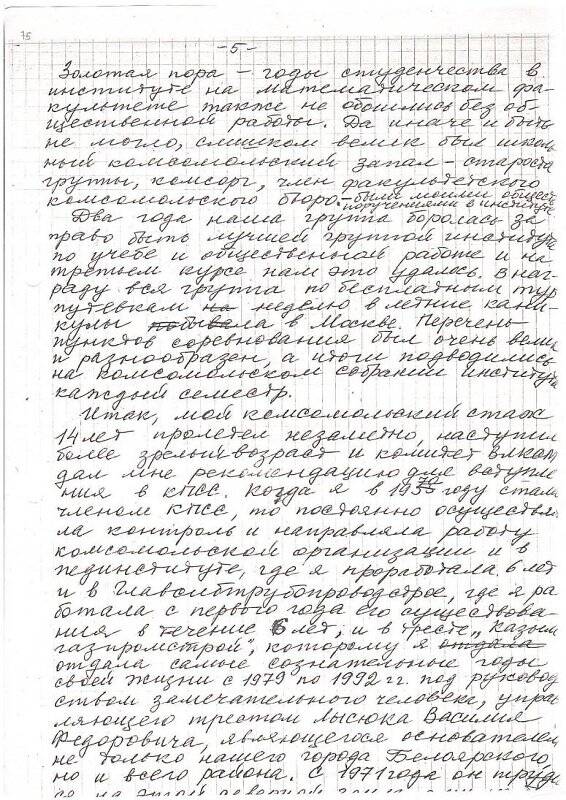 75
-5-
Золотая пора – годы студенчества в
институте на математическом фа-
культете также не обошлись без об-
щественной работы. Да иначе и быть
не могло, слишком велик был школь
ный комсомольский запал – староста
группы, комсорг, член факультетского
комсомольского бюро – были моими общест
поручениями в институте
Два года наша группа боролась за
право быть лучшей группой института
по учебе и общественной работе и на
третьем курсе нам это удалось. В наг-
раду вся группа по бесплатным тур
путевкам на неделю в летние кани-
кулы побывала в Москве. Перечень
пунктов соревнования был очень вели
и разнообразен, а итоги подводились
на комсомольском собрании института
каждый семестр.
Итак, мой комсомольский стаж
14 лет пролетел незаметно, наступил
более зрелый возраст и комитет ВЛКСМ
дал мне рекомендацию для вступле
ния в КПСС. Когда я в году стала
членом КПСС, то постоянно осуществля
ла контроль и направляла работу
комсомольской организации и в
пединституте, где я проработала 6 лет
и в Главсибтрубопроводстрое, где я ра
ботала с первого года его существова-
ния в течение 6 лет, и в тресте „Казым
газпромстрой", которому я отдала
отдала самые сознательные годы
своей жизни с 1979 по 1992 гг. под руковод
ством замечательного человека, упра
ляющего трестом Лысюка Василия
Федоровича, являющегося основателем
не только нашего города Белоярского
но и всего района. С 1971 года он труди